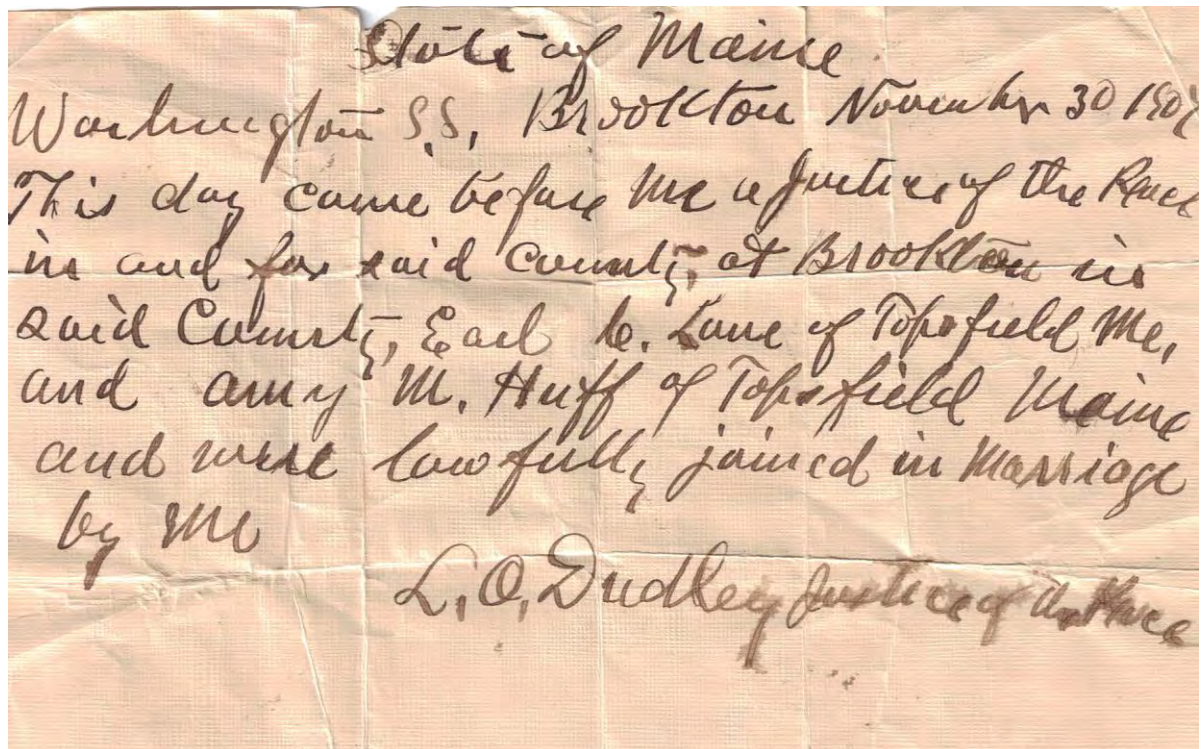 State of Maine.
Washington S.S, Brookton November 30
This day came before me a Justice of the Peace
in and for said county, at Brookton in
said County, Earl C. Lane of Topsfield Me,
and amy M. Huff of Topsfield Maine
and were lawfully joined in Marriage
by Me
L. O. Dudley Justice of the Peace